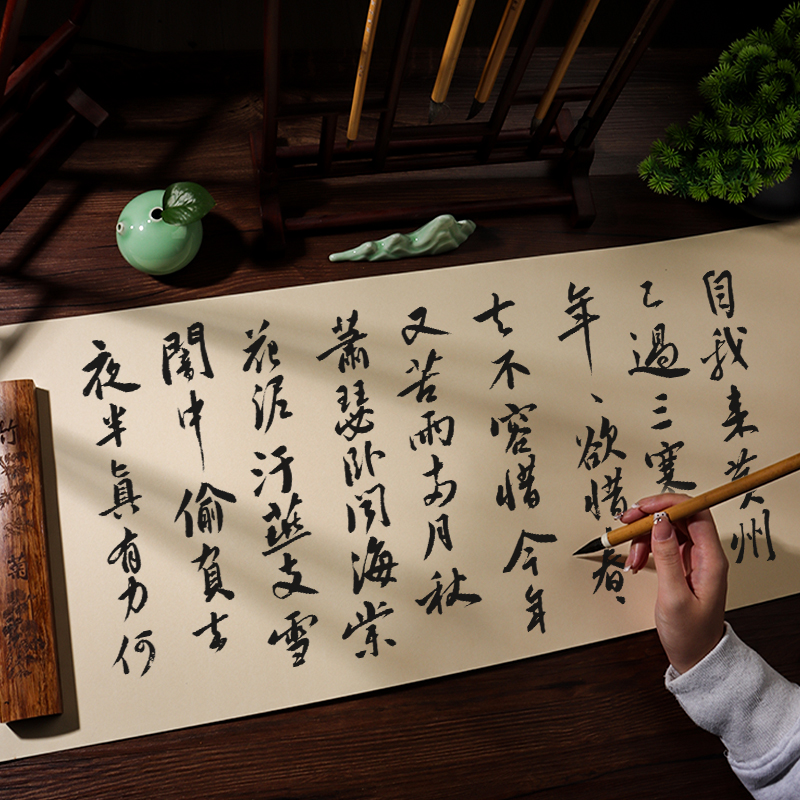 自我来黄州
已過三寒
年、欲惜春、
去不容惜今年
又苦雨两月秋
蕭瑟卧聞海棠
花泥汙燕支雪
闇中偷負去
夜半真有力何
竹
菊